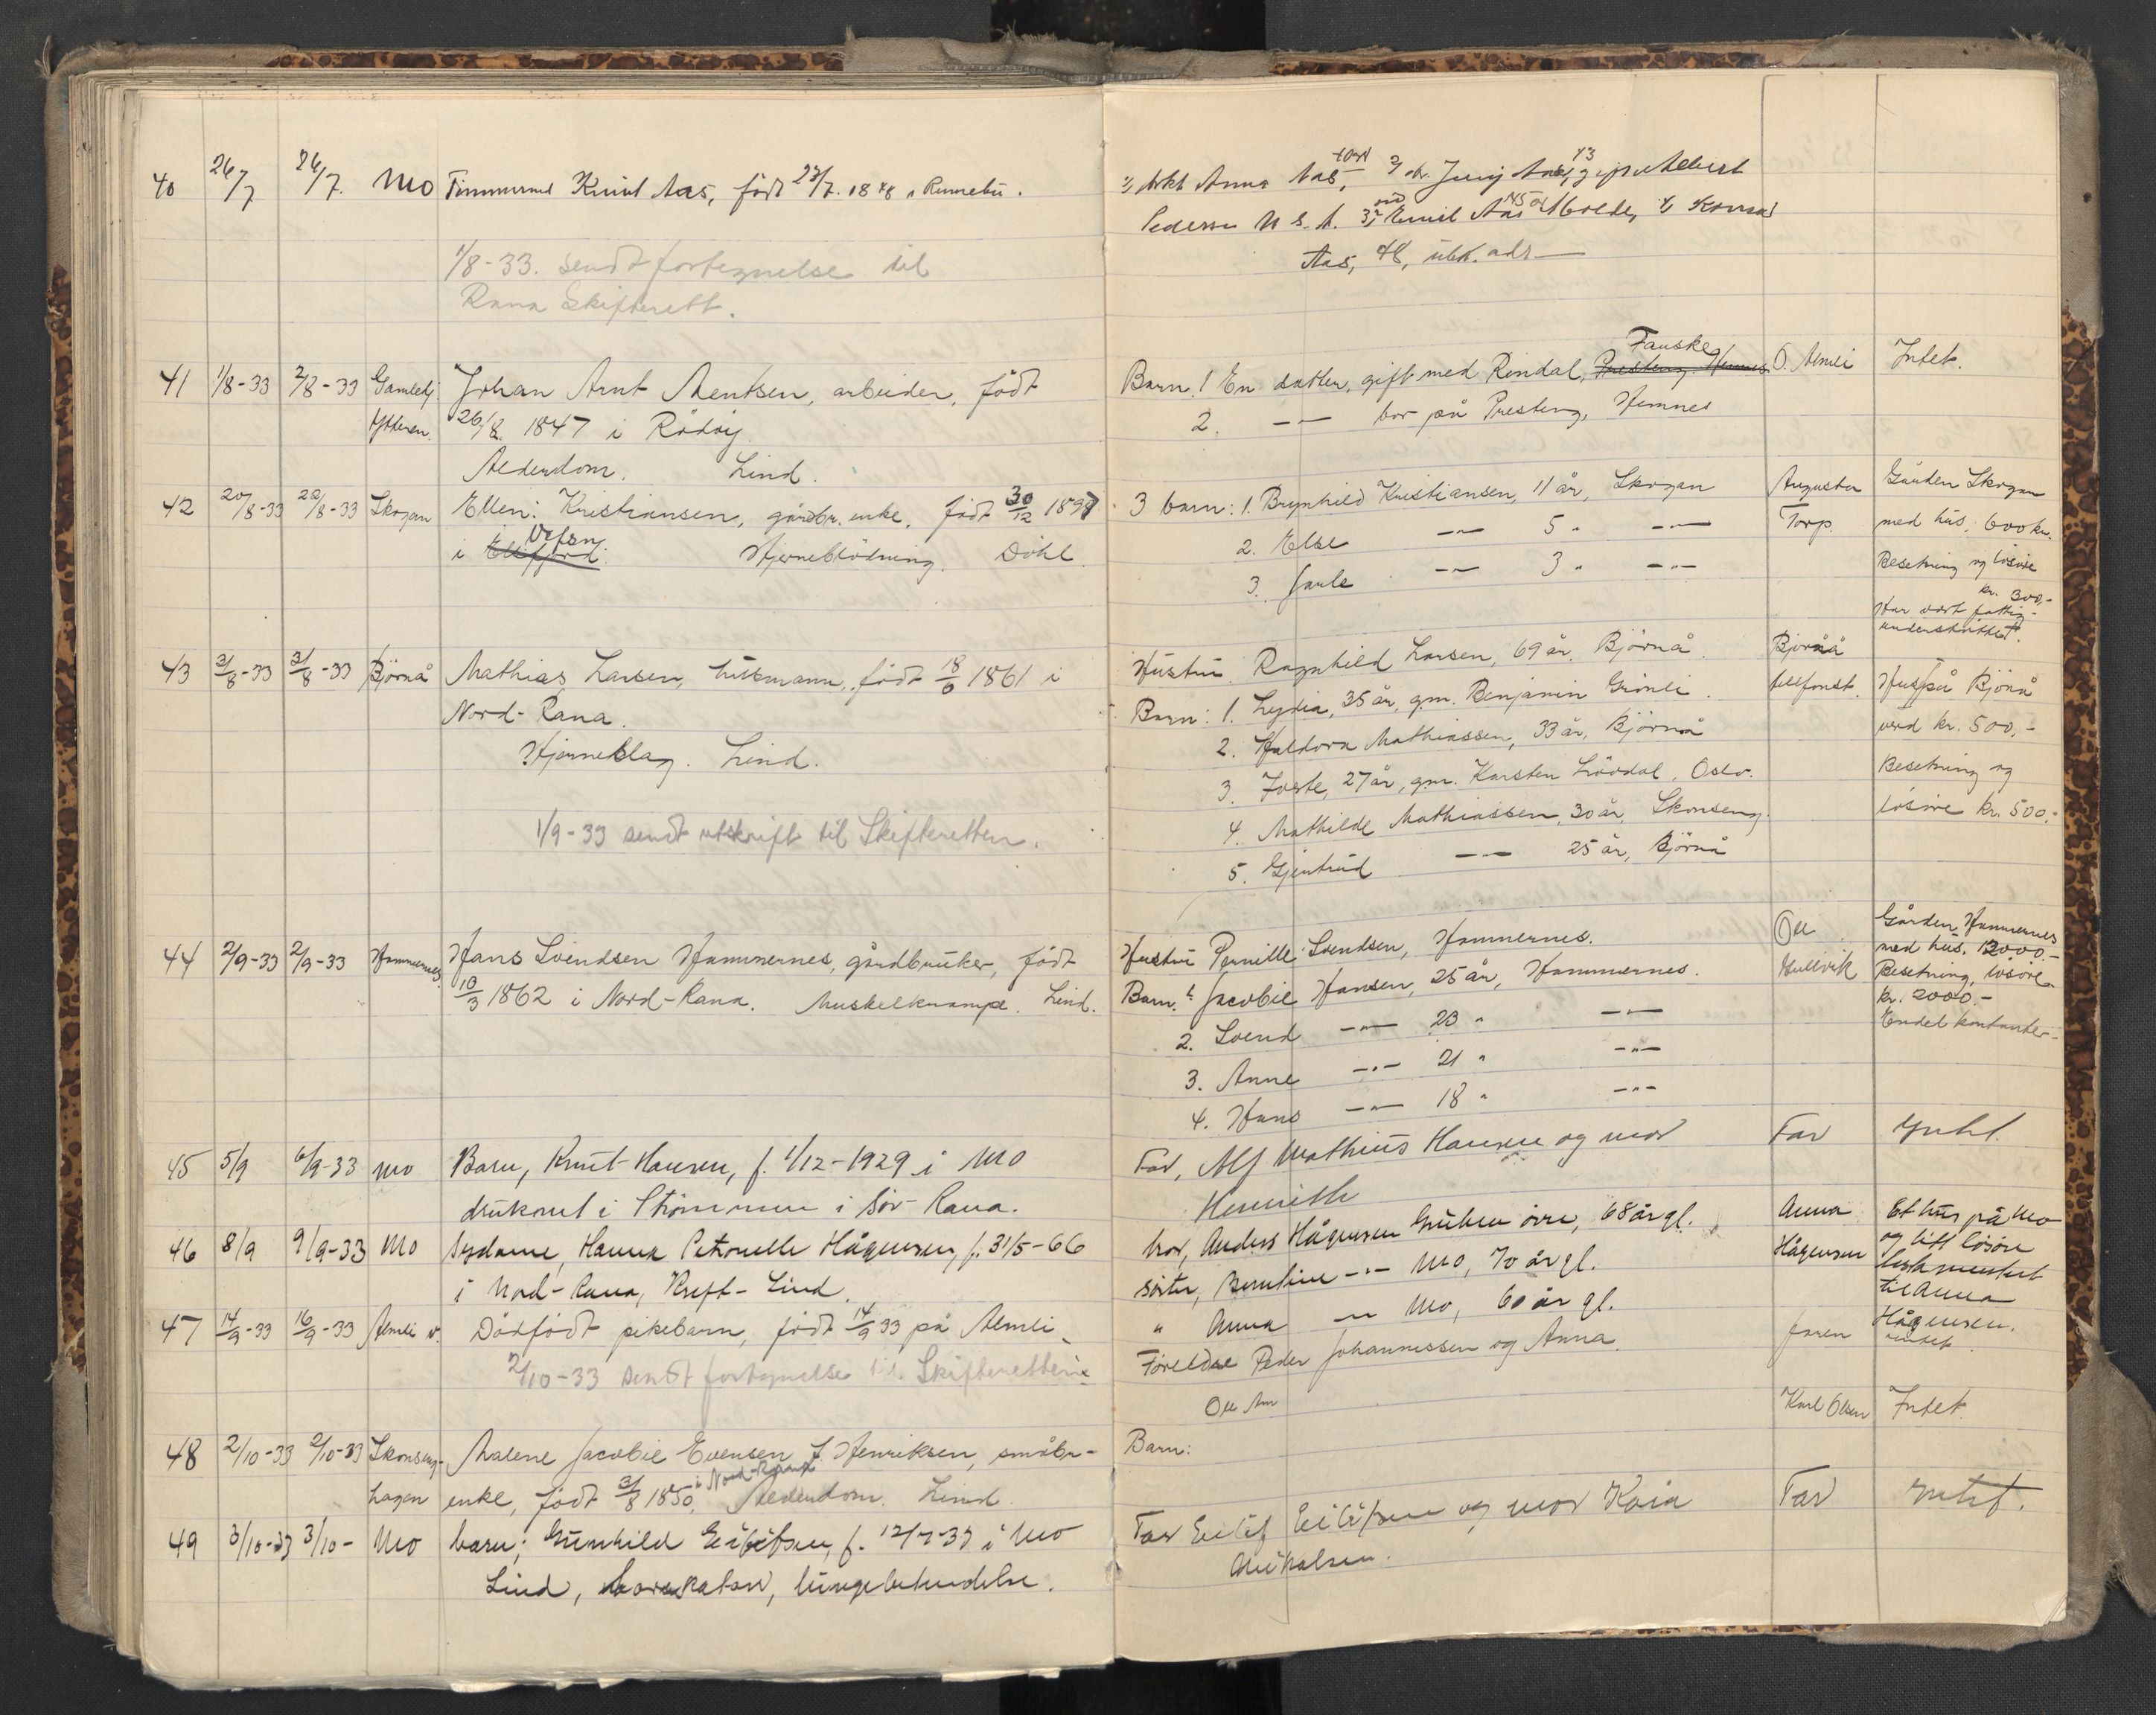 40 26/7 26/7. Mo Tømmermd Knut Aas, født 27/7. 1848 i Rennebu.
1/8-33. sendt fortegnelse til
Rana Skifterett.
41 1/8-33 2/8-33 Gamlehj. Johan Arnt Arentsen, arbeider, født
Ytteren. 26/8. 1847 i Rödöy.
Alderdom. Lind.
42 20/8-33 22/8-33 Skogan Ellen Kristiansen, gårdbr. enke, født 30/12 1897
Vefsn
i Elsfjord. Hjerneblödning. Döhl.
43 31/8-33 31/8-33 Björnå Mathias Larsen, født 18/6 1861 i
Nord-Rana.
Hjerneslag. Lind.
1/9-33 sendt utskrift til Skifteretten.
44 2/9-33 2/9-33 Hammernes Hans Svendsen Hammernes, gårdbruker, født
10/3 1862 i Nord-Rana. Muskelkrampe. Lind.
45 5/9 6/9-33 Mo Barn, Knut Hansen, f. 1/12-1929 i Mo
druknet i Strömmen i Sör-Rana.
46 8/9 9/9-33 Mo Sydame, Hanna Petronelle Hågensen, f. 31/5-66
i Nord-Rana, Kreft- Lind.
47 14/9-33 16/9-33 Almli n. Dödfödt pikebarn, född 14/9 33 på Almli
2/10-33 sendt fortegnelse til Skifteretten
48 2/10-33 2/10-33 Skonseng- Malene Jacobie Evensen f. Henriksen, småbr-
i Nord-Rana
hagen enke, født 31/8 1850. Alderdom. Lind.
49 3/10-33 3/10- Mo barn; Gunhild Eilifsen, f. 12/7-33 i Mo
Lind, lungebetendelse.
Anna Aas, Jenny Aas, gift m Albert
Pedersen U.S.A. 3) Emil Aas Molde, Konrad
Aas, 48, ubk. adr
Fauske
Barn 1 En datter, gift med Rindal, Presteng Hemnes O. Almli Intet.
2. -"- bor på Presteng, Hemnes
3 barn: 1. Brynhild Kristiansen, 11 år, Skogan Augusta Gården Skogan
2. Else -"- 5 " -"- Torp. med hus, 600 kr.
3. Jarle -"- 3 " -"- Besetning og lösöre
kr. 300,-
Har vært fattig-
understöttet.
Hustru Ragnhild Larsen, 69 år, Björnå. Björnå
Barn: 1. Lydia, 35 år, gm. Benjamin Grönli. fellfonst. Hus på Björnå
2. Haldora Mathiassen, 33 år, Björnå verd kr. 500,-
3. 27 år, gm. Karsten Lövdal, Oslo. Besetning og
4. Mathilde Mathiassen, 30 år, Skonseng. lösöre kr. 500,-
5. Gjertrud -"- 25 år, Björnå
Hustru Pernille Svendsen, Hammernes. Ole Gården Hammernes
med hus, 12000.-
Barn: 1. Jacobie Hansen, 25 år, Hammernes. Gullvik Besetning, lösöre
kr. 2000.-
2. Svend -"- 23 " -"- Endel kontanter
3. Anne -"- 21 " -"-
4. Hans -"- 18 " -"-
Far, Alf Mathius Hansen og mor Far Intet.
Henriette
bror, Anders Hågensen Gruben övre, 68 år gl. Anna Et hus på Mo
söster, Berntine -"- Mo, 70 år gl. Hågensen og litt lösöre
testamentert
" Anna -"- Mo, 60 år gl. til Anna
Hågensen.
Foreldre Peder Johannessen og Anna. faren intet
Karl Olsen Intet.
Barn:
Far Eilif Eilifsen og mor Kaia Far Intet.
Mikalsen.